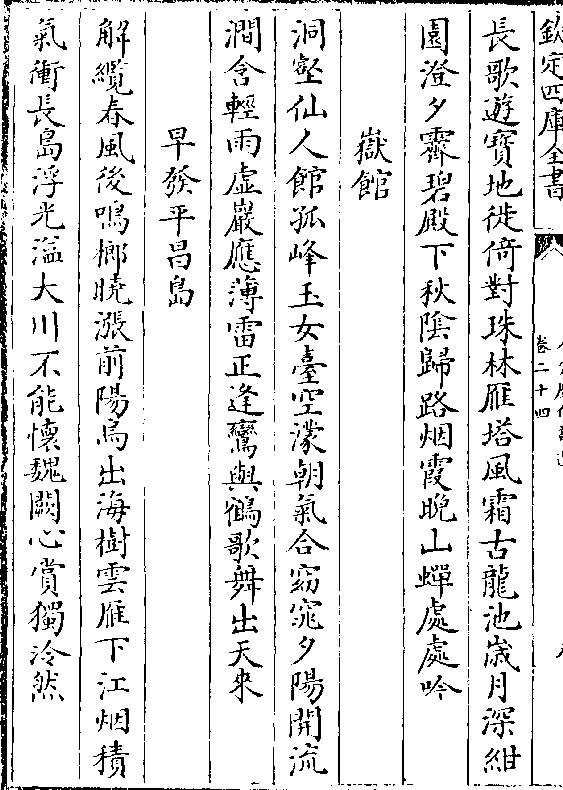 欽定四庫全書
卷二十四
長歌遊寳地徙倚對珠林雁塔風霜古龍池嵗月深紺
園澄夕霽碧殿下秋陰歸路烟霞晩山蟬處處吟
嶽館
洞壑仙人館孤峰玉女臺空濛朝氣合窈窕夕陽開流
澗含輕雨虛巖應薄雷正逢鸞與鶴歌舞出天來
早發平昌島
解纜春風後鳴榔曉漲前陽烏出海樹雲雁下江烟積
氣衝長島浮光溢大川不能懷魏闕心賞獨泠然